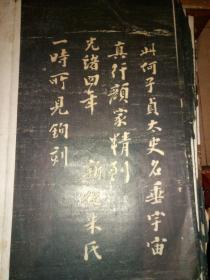 此何子貞太史名垂宇宙
真行顏家精到
光緒四年 新 朱氏
一時所見鉤刻